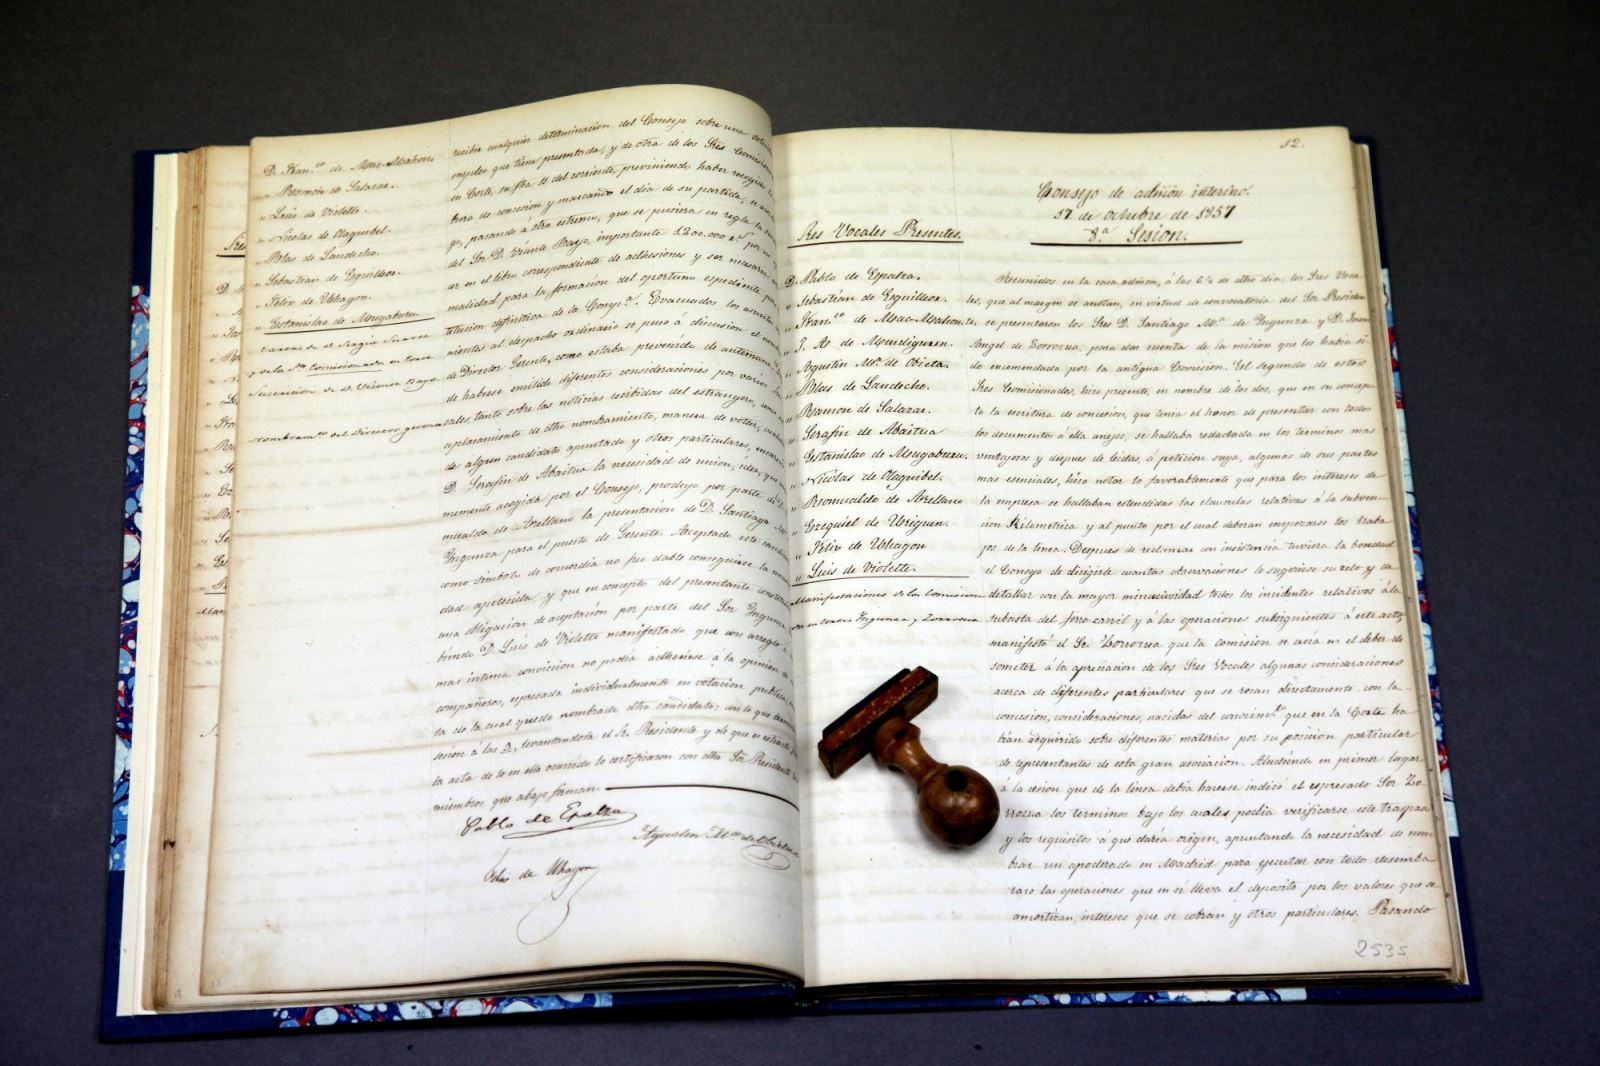 D. Fran.co de Mac-Mahon.
" Ramon de Salazar.
" Luis de Violette.
" Nicolas de Olaguibel.
" Blas de Landecho.
" Sebastian de Eguilleor.
" Felix de Uhagon.
" Estanislao de Mugaburu.
Sucesion de D. Vicente Bayo.
Nombram.to del Director gerente
recibir cualquier determinacion del Consejo sobre una
empleo que tiene presentada, y de otra de los Sres Comision
en Corte, su fha 11 del corriente, previniendo haber recogido la
tura de concesion y marcando el dia de su partida, se
pasando á otro estremo, que se pusiera en regla la
del Sor D. Vicente Bayo, importante 1.200.000
en el libro correspondiente de adhesiones y ser necesaria
malidad para la formacion del oportuno espediente
titucion definitiva de la Comp.a. Evacuados los asuntos
nientes al despacho ordinario se puso á discusion el nom
de Director Gerente, como estaba prevenido de antemano
de haberse emitido diferentes consideraciones por varios
cales, tanto sobre las noticias recibidas del estrangero, como
aplazamiento de dho nombramiento, manera de votar,
de algun candidato apuntado y otros particulares,
D. Serafin de Abaitua la necesidad de union, idea, que
memente acogida por el Consejo, produjo por parte de D. Ro
mualdo de Arellano la presentacion de D. Santiago
Ingunza para el puesto de Gerente. Aceptado este candi
como simbolo de concordia no fue dable conseguirse la unani
dad apetecida, y que en concepto del presentante
una obligacion de aceptacion por parte del Sor Ingunza
biendo D. Luis de Violette manifestado que con arreglo á
mas intima conviccion no podia adherirse á la opinion de
compañeros, espresada individualmente en votacion publica,
ta de la cual quedo nombrado dho candidato; con lo que termino
sesion á las 2, levantandola el Sr. Presidente y de que es estracto
la acta de lo en ella ocurrido lo certificaron con dho Sor Presidente los
miembros que abajo firman.
Pablo de Epalza
Agustin M.a de Obieta
Felix de Uhagon
12.
Consejo de admon interino.
17 de octubre de 1857
8.a Sesion.
Sres Vocales Presentes.
D. Pablo de Epalza.
" Sebastian de Eguilleor.
" Fran.co de Mac-Mahon.
" T. A. de Mendiguren.
" Agustin M.a de Obieta.
" Blas de Landecho.
" Ramon de Salazar.
" Serafin de Abaitua
" Estanislao de Mugaburu.
" Nicolas de Olaguibel.
" Romualdo de Arellano
" Ezequiel de Uriguen.
" Felix de Uhagon
" Luis de Violette.
Manifestaciones de los Comisiona
dos en Corte Ingunza y Zorrozua
Reunidos en la casa admon, á las 6 1/2 de dho dia, los Sres Voca
les, que al margen se anotan, en virtud de convocatoria del Sor Presiden
te, se presentaron los Sres D. Santiago M.a de Ingunza y D. Juan
Angel de Zorrozua, para dar cuenta de la mision que les habia si
do encomendada por la antigua Comision. El segundo de estos
Sres Comisionados, hizo presente, en nombre de los dos, que en su concep
to la escritura de concesion, que tenia el honor de presentar con todos
los documentos á ella anejos, se hallaba redactada en los terminos mas
ventajosos y despues de leidas, á peticion suya, algunas de sus partes
mas esenciales, hizo notar lo favorablemente que para los intereses de
la empresa se hallaban estendidas las clausulas relativas á la subven
cion kilometrica y al punto por el cual deberan empezarse los traba
jos de la linea. Despues de reclamar con insistencia tuviera la bondad
el Consejo de dirigirle cuantas observaciones le sugeriese su zelo y de
detallar con la mayor minuciosidad todos los incidentes relativos á la
subasta del ferro-carril y á las operaciones subsiguientes á este acto,
manifestó el Sr. Zorrozua que la comision se veia en el deber de
someter á la apreciacion de los Sres Vocales algunas consideraciones
acerca de diferentes particulares que se rozan directamente con la
concesion, consideraciones, nacidas del conocim.to que en la Corte ha
bian adquirido sobre diferentes materias por su posicion particular
de representantes de esta gran asociacion. Aludiendo en primer lugar
á la cesion que de la linea debia hacerse indicó el espresado Sor Zo
rrozua los terminos bajo los cuales podia verificarse este traspaso
y los requisitos á que daria origen, apuntando la necesidad de nom
brar un apoderado en Madrid para ejecutar con todo desemba
razo las operaciones que en sí lleva el deposito por los valores que se
amortizan, intereses que se cobran y otros particulares. Pasando
2535